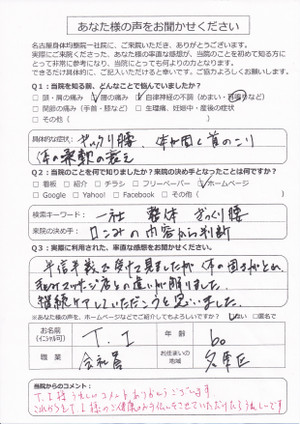 あなた様の声をお聞かせください
名古屋身体均整院一社院に、ご来院いただき、ありがとうございます。
実際にご来院くださった、あなた様の率直な感想が、当院のことを初めて知る方に
とって非常に参考になり、当院にとっても何よりの力となります。
できるだけ具体的に、ご記入いただけると幸いです。ご協力よろしくお願いします。
Q1:当院を知る前、どんなことで悩んでいましたか?
□頭・肩の痛み ☑腰の痛み □自律神経の不調(めまい・耳鳴りなど)
□関節の痛み(手首・膝など) □生理痛、妊娠中・産後の症状
□その他( )
具体的な症状: ぎっくり腰 体が固く首のこり
体の柔軟の衰え
Q2:当院のことを何で知りましたか?来院の決め手となったことは何ですか?
□看板 □紹介 □チラシ □フリーペーパー ☑ホームページ
□Google □Yahoo! □Facebook □その他( )
検索キーワード: 一社 整体 ぎっくり腰
来院の決め手: 口こみの内容から判断
Q3:実際に利用された、率直な感想をお聞かせください。
半信半疑で受けて見ましたが 体の固さがとれ
マッサージ店との違いが解りました。
継続ケアしていただこうと思いました。
※あなた様の声を、ホームページなどでご紹介してもよろしいですか? ☑はい □匿名で
お名前
(イニシャル可) T.I 年齢 60
職業 会社員 お住まいの
地域 名東区
当院からのコメント:
T.I様 うれしいコメントありがとうございます。
これからもT.I様のご健康のお手伝いをさせていただけたらうれしいです